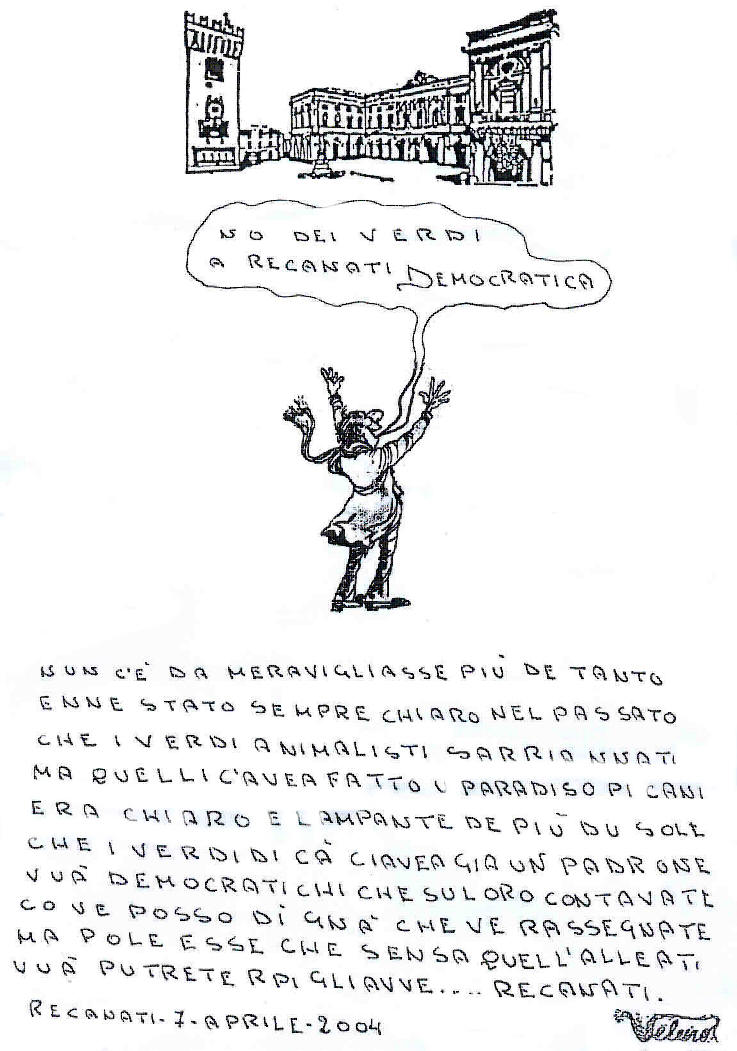 NO DEI VERDI
A RECANATI DEMOCRATICA
NUN C'È DA MERAVIGLIASSE PIÙ DE TANTO
ENNE STATO SEMPRE CHIARO NEL PASSATO
CHE I VERDI ANIMALISTI SARRIA NNATI
MA QUELLI C'AVEA FATTO U PARADISO PI CANI
ERA CHIARO E LAMPANTE DE PIÙ DU SOLE
CHE I VERDI DI CÀ CIAVEA GIA UN PADRONE
VUÀ DEMOCRATICHI CHE SU LORO CONTAVATE
CO VE POSSO DÌ GNÀ CHE VE RASSEGNATE
MA POLE ESSE CHE SENSA QUELL'ALLEATI
VUÀ PUTRETE RPIGLIAVVE.... RECANATI.
RECANATI-7-APRILE-2004